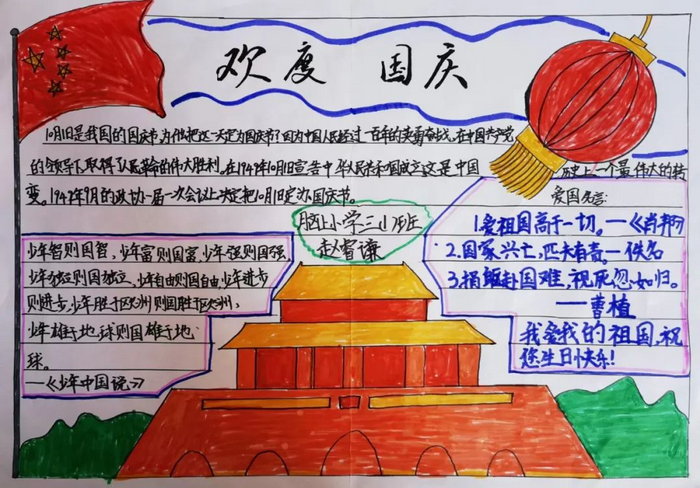 欢度 国庆
10月1日是我国的国庆节,为什么把这一天定为国庆节?因为中国人民经过一百年的英勇奋战,在中国共产党
的领导下,取得了人民革命的伟大胜利。在1949年10月1日宣告中华人民共和国成立,这是中国历史上一个最伟大的转
变。1949年9月的政协一届一次会议上决定把10月1日定为国庆节。
脑上小学三(1)班
赵睿谦
少年智则国智,少年富则国富,少年强则国强,
少年独立则国独立,少年自由则国自由,少年进步
则国进步,少年胜于欧洲则国胜于欧洲,
少年雄于地球则国雄于地
球。
—《少年中国说》
爱国名言:
1.爱祖国高于一切。—《肖邦》
2.国家兴亡,匹夫有责。—佚名
3.捐躯赴国难,视死忽如归。
—曹植
我爱我的祖国,祝
您生日快乐!